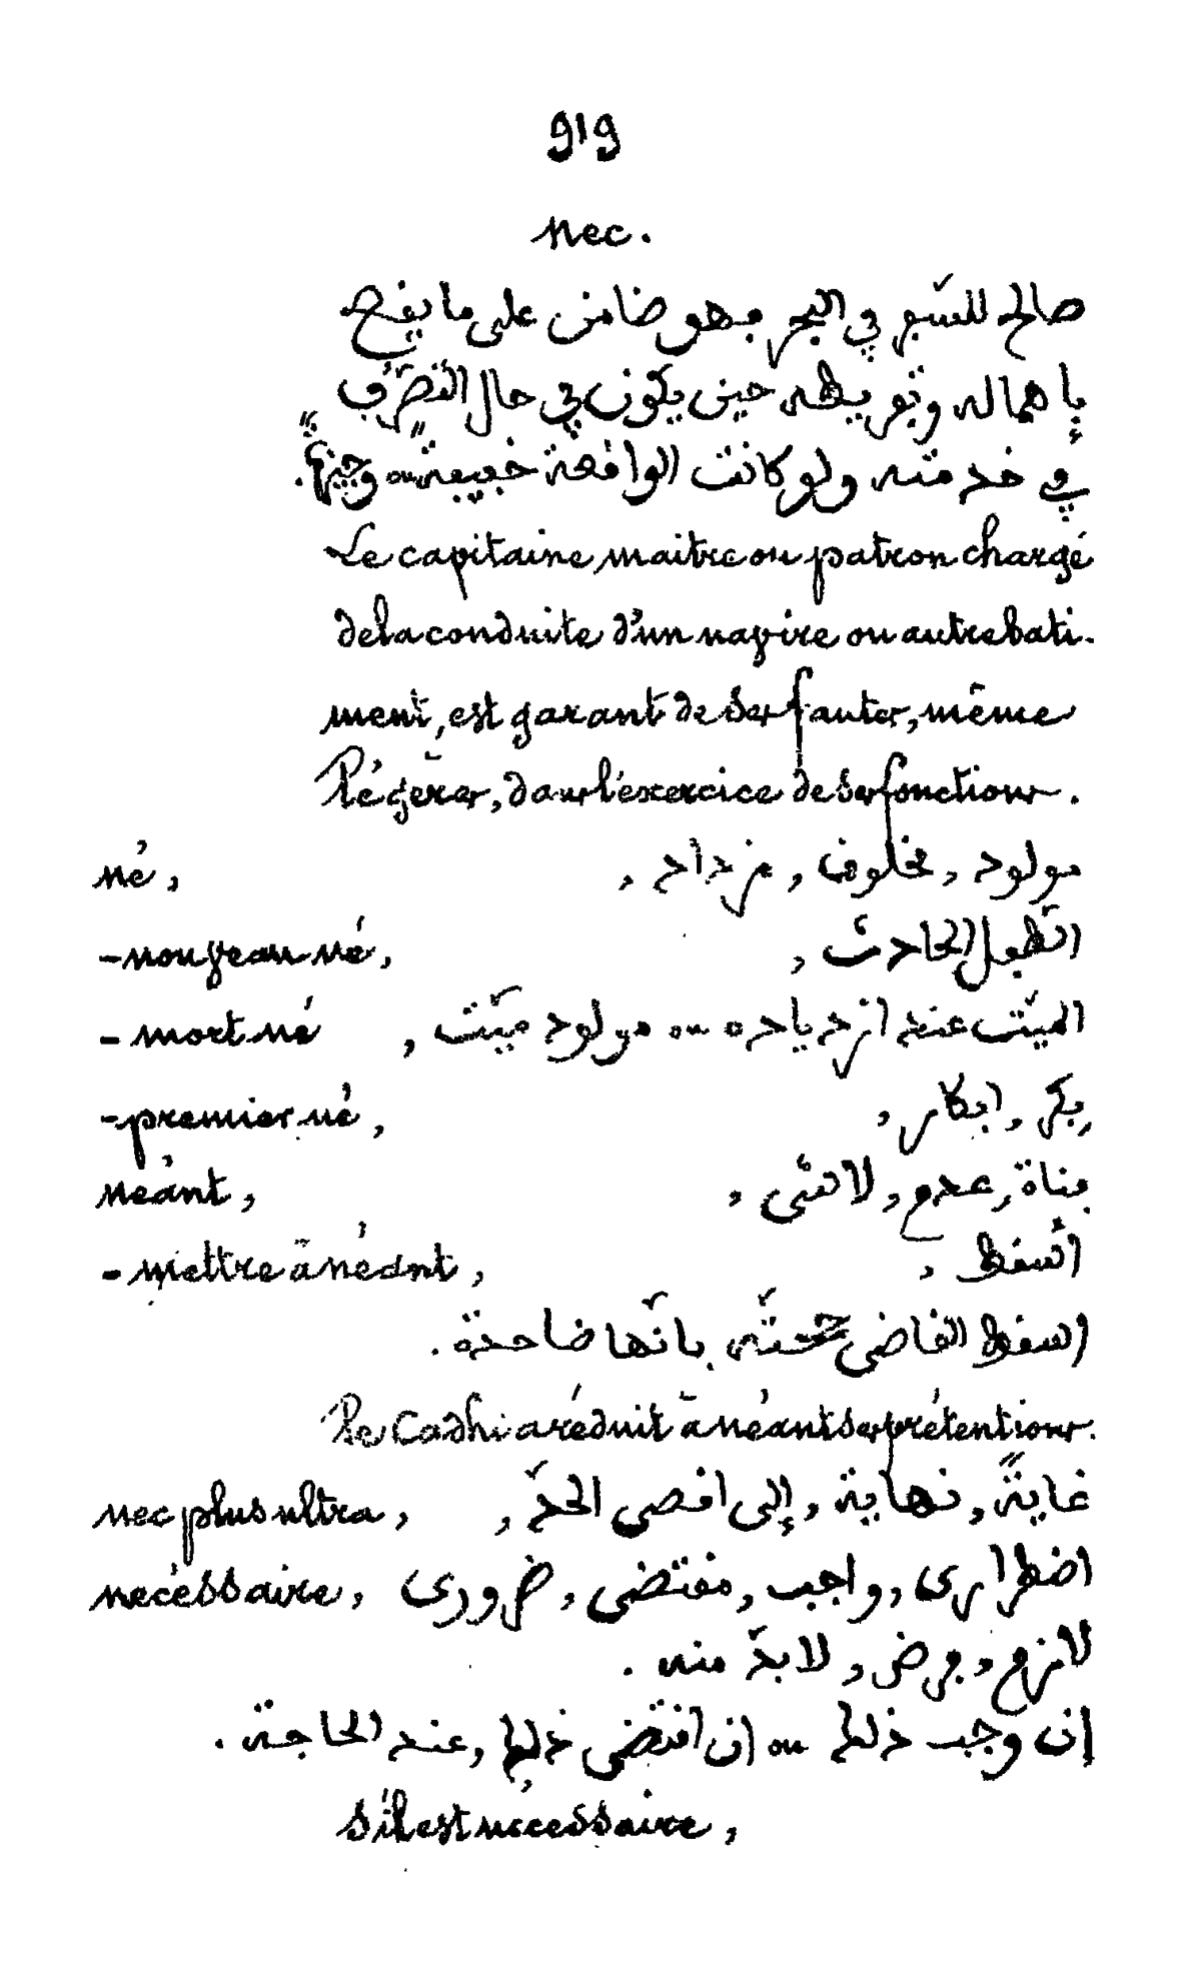 919
Nec.
صالح للسّفر في البحر فهو ضامن على ما يقع
بإهماله وتفريطه حين يكون في حال التّصرّف
في خدمته ولو كانت الواقعة خفيفةً ou
Le capitaine maitre ou patron chargé
de la conduite d'un navire ou autre bati-
ment, est garant de ses fautes, même
légères, dans l'exercice de ses fonctions.
né, مولود, مخلوق, مزداد,
-nouveau né, الطّفل الحادث,
- mort né الميّت عند ازدياده ou مولود ميّت,
-premier né, بِكر, ابكار,
néant, فناة, عدم, لا شى,
- mettre à néant, اسقط,
اسقط القاضى حجّته بانّها ضاحدة.
le Cadhi a réduit à néant ses prétentions.
nec plus ultra, غايةً, نهاية, إلى اقصى الحدّ,
nécessaire, اضطرارى, واجب, مقتضى, ضرورى,
لازم, فرض, لا بدّ منه.
ان وجب ذلك ou ان اقتضى ذلك, عند الحاجة.
s'il est nécessaire,